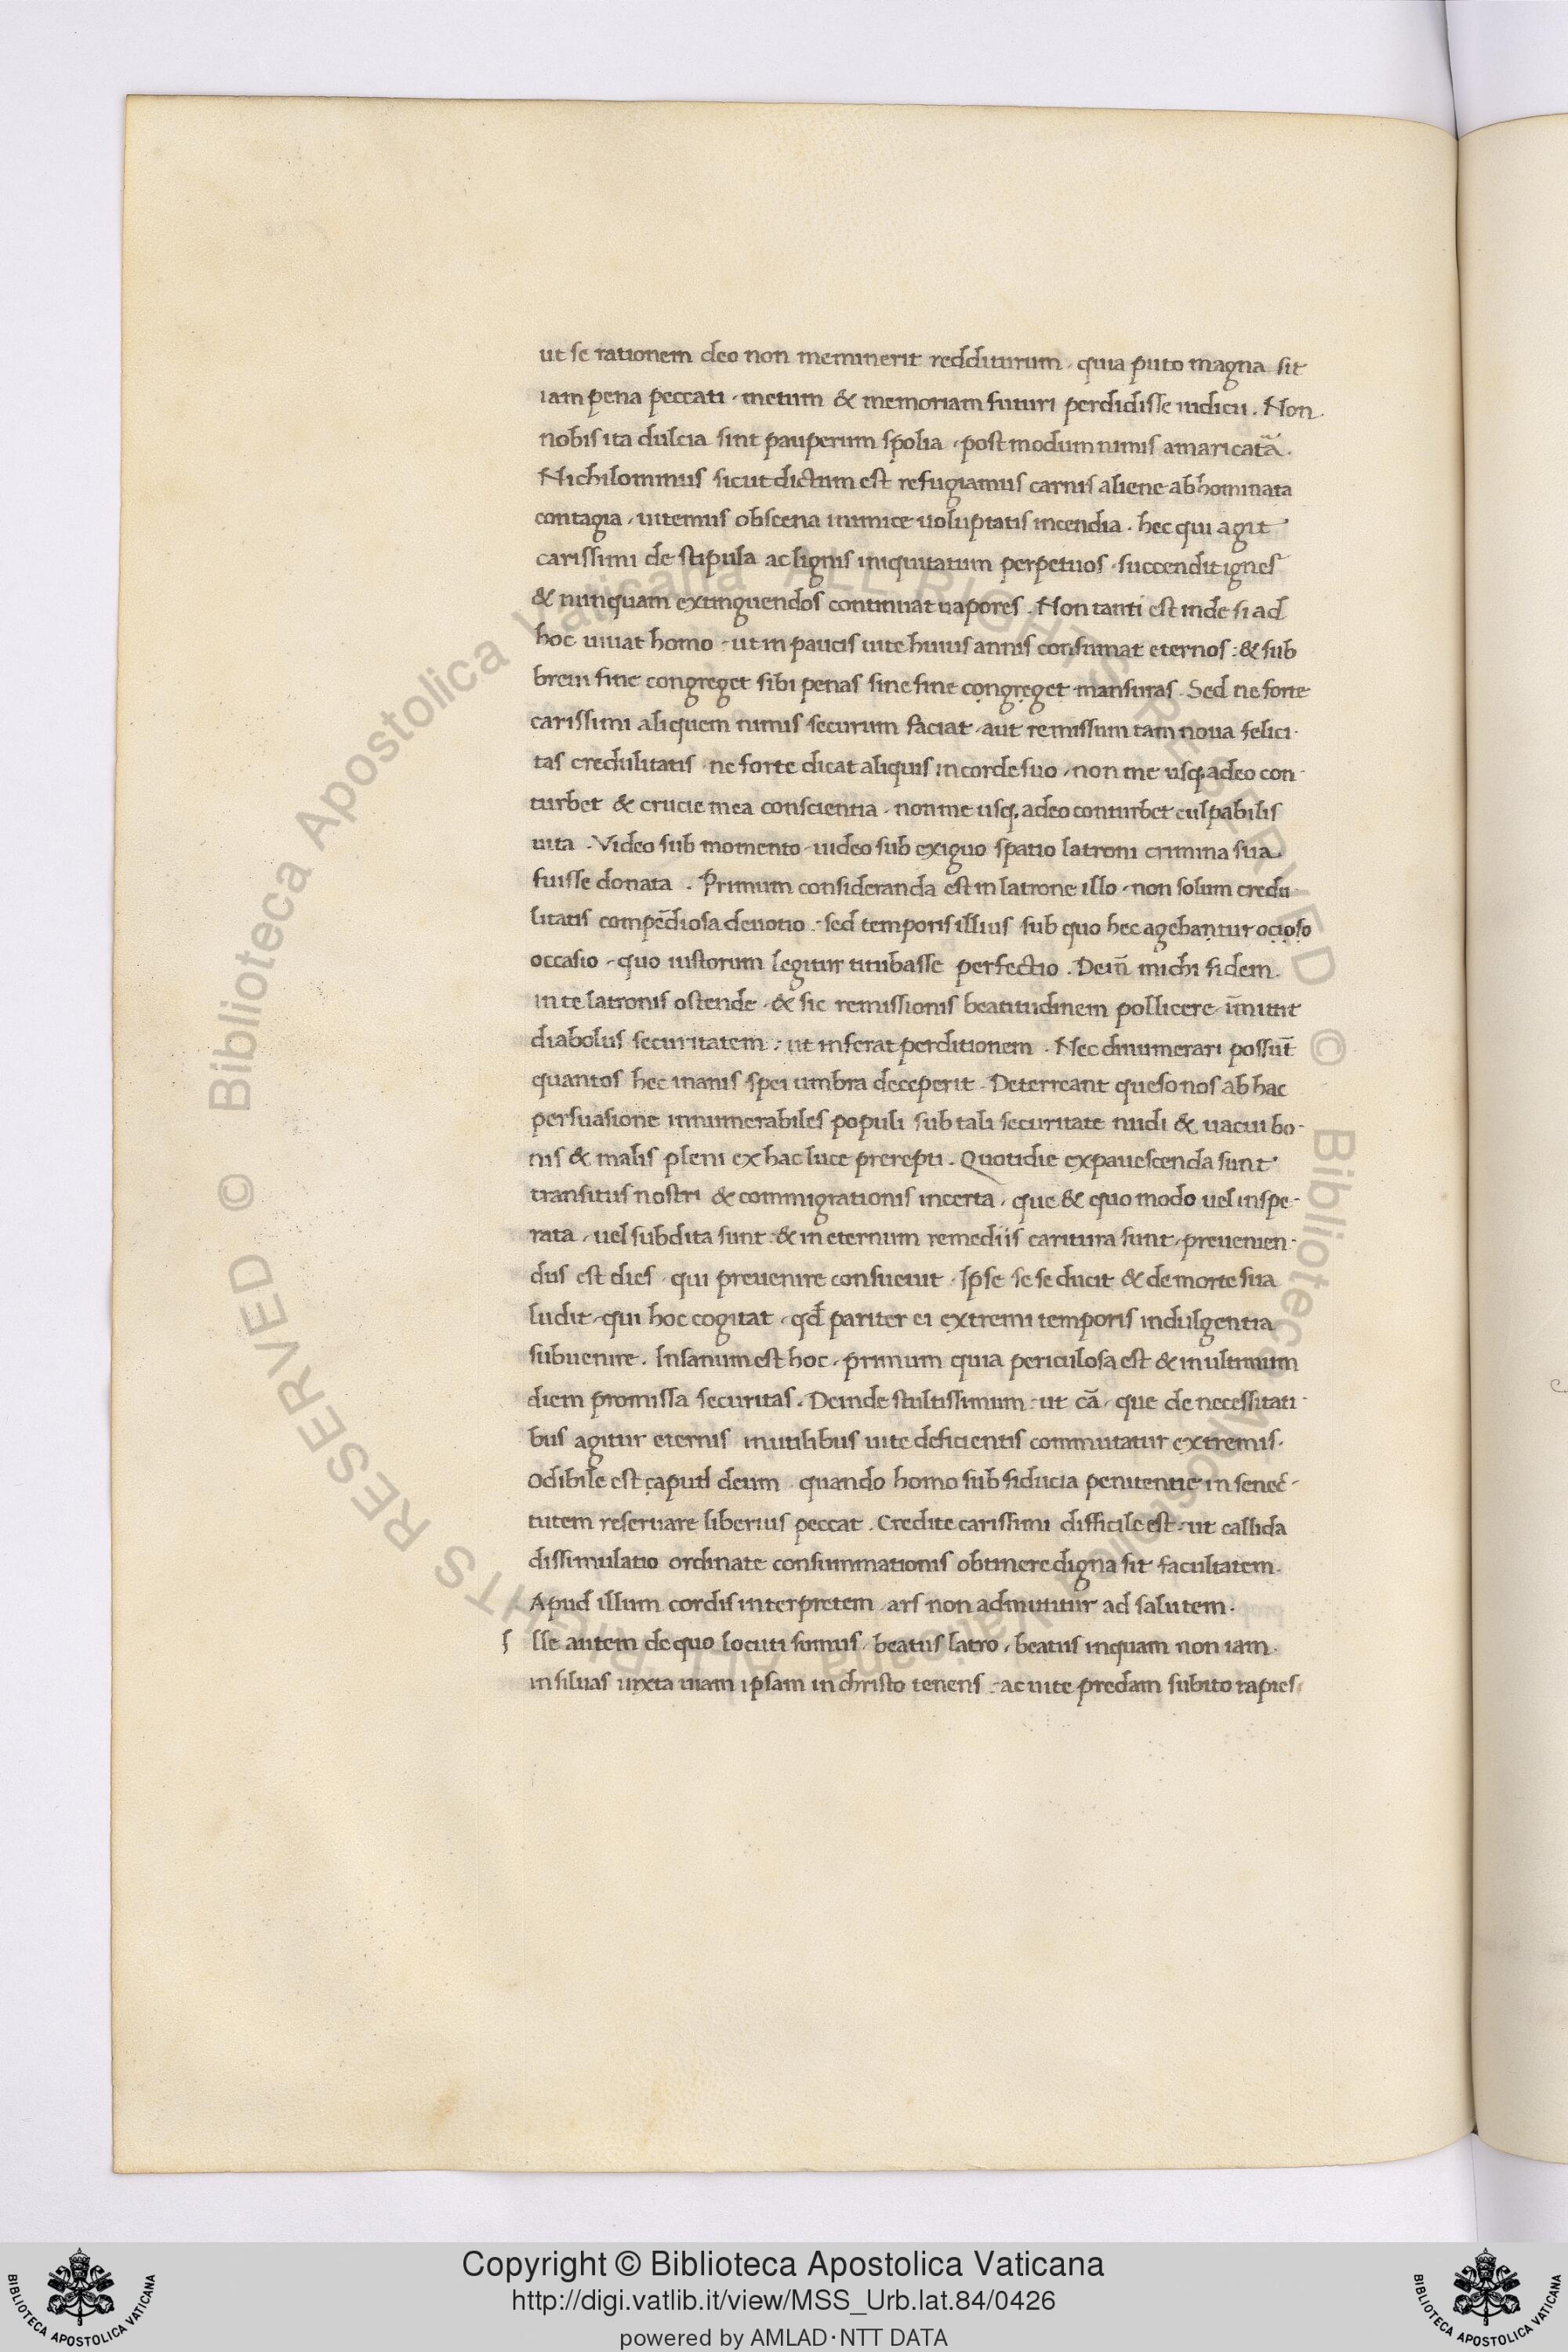 ut se rationem deo non meminerit redditurum, quia puto magna sit
iam pena peccati, metum & memoriam futuri perdidisse iudicii. Non
nobis ita dulcia sint pauperum spolia, post modum nimis amaricatā.
Nichilominus sicut dictum est refugiamus carnis aliene abhominata
contagia, uitemus obscena inimice uoluptatis incendia. hec qui agit
carissimi de stipula ac lignis iniquitatum perpetuos succendit ignes
& nunquam extinguendos continuat uapores. Non tanti est inde si ad
hoc uiuat homo, ut in paucis uite huius annis consumat eternos: & sub
breui fine congreget sibi penas sine fine congreget mansuras. Sed ne forte
carissimi aliquem nimis securum faciat, aut remissum tam noua felici-
tas credulitatis, ne forte dicat aliquis in corde suo, non me usq; adeo con-
turbet & crucie mea conscientia, non me usq; adeo conturbet culpabilis
uita. Video sub momento, uideo sub exiguo spatio latroni crimina sua
fuisse donata. Primum consideranda est in latrone illo, non solum credu-
litatis compēdiosa deuotio, sed temporis illius sub quo hec agebantur ocioso
occasio, quo iustorum legitur titubasse perfectio. Dein̄ michi fidem
in te latronis ostende, & sic remissionis beatitudinem pollicere, īmittit
diabolus securitatem: ut inferat perditionem. Nec dinumerari possūt
quantos hec inanis spei umbra deceperit. Deterreant queso nos ab hac
persuasione innumerabiles populi sub tali securitate nudi & uacui bo-
nis & malis pleni ex hac luce prerepti. Quotidie expauescenda sunt
transitus nostri & commigrationis incerta, que & quo modo uel inspe-
rata, uel subdita sunt: & in eternum remediis caritura sunt, preuenien-
dus est dies, qui preuenire consueuit. Ipse se seducit & de morte sua
ludit, qui hoc cogitat, qđ pariter ei extremi temporis indulgentia
subuenire. Insanum est hoc, primum quia periculosa est & in ultimum
diem promissa securitas. Deinde stultissimum, ut cā, que de necessitati-
bus agitur eternis inutilibus uite deficientis commutatur extremis.
Odibile est caput deum, quando homo sub fiducia penitentie in senec-
tutem reseruare liberius peccat. Credite carissimi difficile est, ut callida
dissimulatio ordinate consummationis obtinere digna sit facultatem.
Apud illum cordis interpretem, ars non admittitur ad salutem.
ſ lle autem de quo locuti sumus, beatus latro, beatus inquam non iam
in siluas iuxta uiam ipsam in christo tenens: ac uite predam subito rapies
Biblioteca Apostolica Vaticana ALL RIGHTS RESERVED © Biblioteca Apostolica Vaticana ALL RIGHTS RESERVED ©
Copyright © Biblioteca Apostolica Vaticana
http://digi.vatlib.it/view/MSS_Urb.lat.84/0426
powered by AMLAD·NTT DATA
BIBLIOTECA APOSTOLICA VATICANA
BIBLIOTECA APOSTOLICA VATICANA